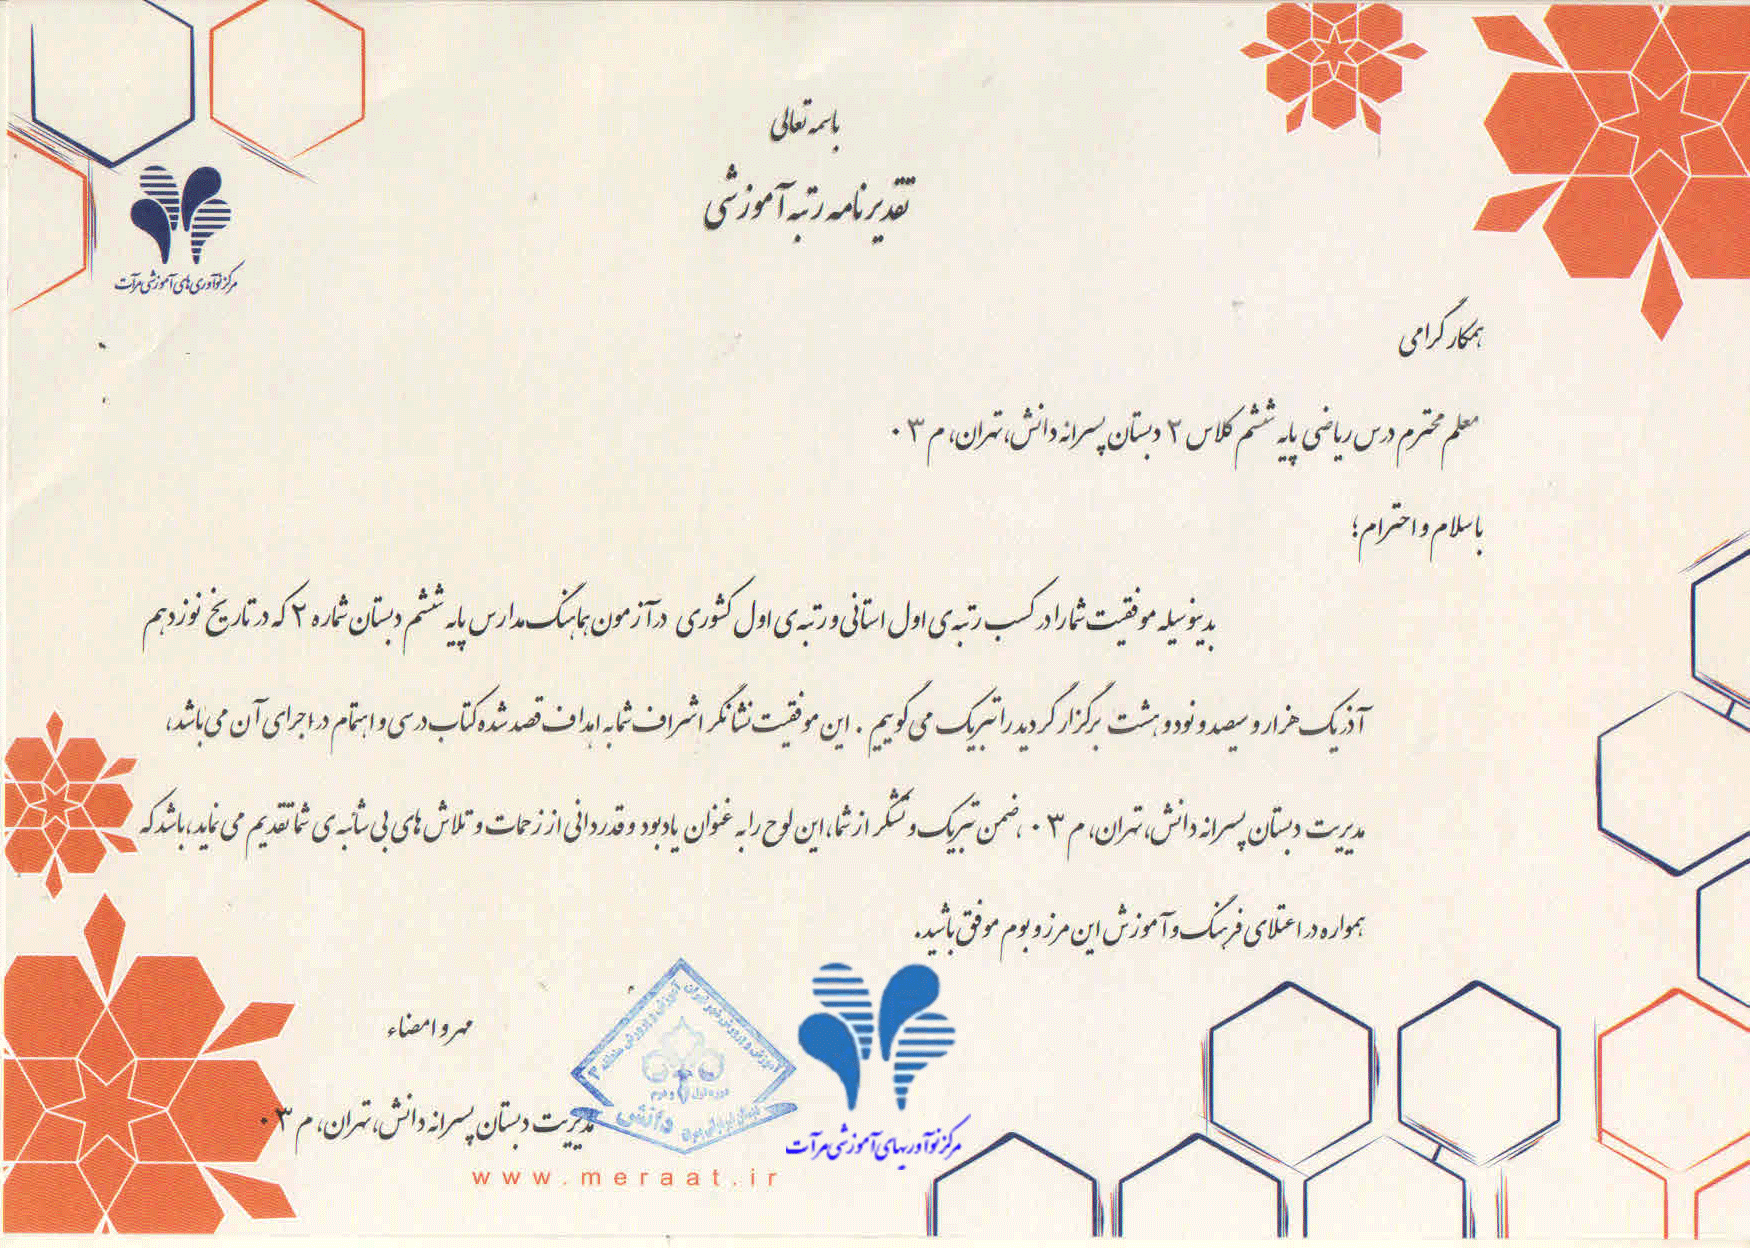 باسمه تعالی
تقدیرنامه رتبه آموزشی
مرکز نوآوری های آموزشی مرآت
همکار گرامی
معلم محترم درس ریاضی پایه ششم کلاس ۲ دبستان پسرانه دانش، تهران، م ۰۳
با سلام و احترام؛
بدینوسیله موفقیت شما را در کسب رتبه ی اول استانی و رتبه ی اول کشوری در آزمون هماهنگ مدارس پایه ششم دبستان شماره ۲ که در تاریخ نوزدهم
آذر یک هزار و سیصد و نود و هشت برگزار گردید را تبریک می گوییم . این موفقیت نشانگر اشراف شما به اهداف قصد شده کتاب درسی و اهتمام در اجرای آن می باشد،
مدیریت دبستان پسرانه دانش، تهران، م ۰۳ ،ضمن تبریک و تشکر از شما، این لوح را به عنوان یادبود و قدردانی از زحمات و تلاش های بی شائبه ی شما تقدیم می نماید، باشد که
همواره در اعتلای فرهنگ و آموزش این مرز و بوم موفق باشید.
مهر و امضاء
مدیریت دبستان پسرانه دانش، تهران، م ۰۳
آموزش و پرورش شهر تهران
آموزش و پرورش منطقه ۳
دوره اول و دوم
دانش
مرکز نوآوریهای آموزشی مرآت
www.meraat.ir